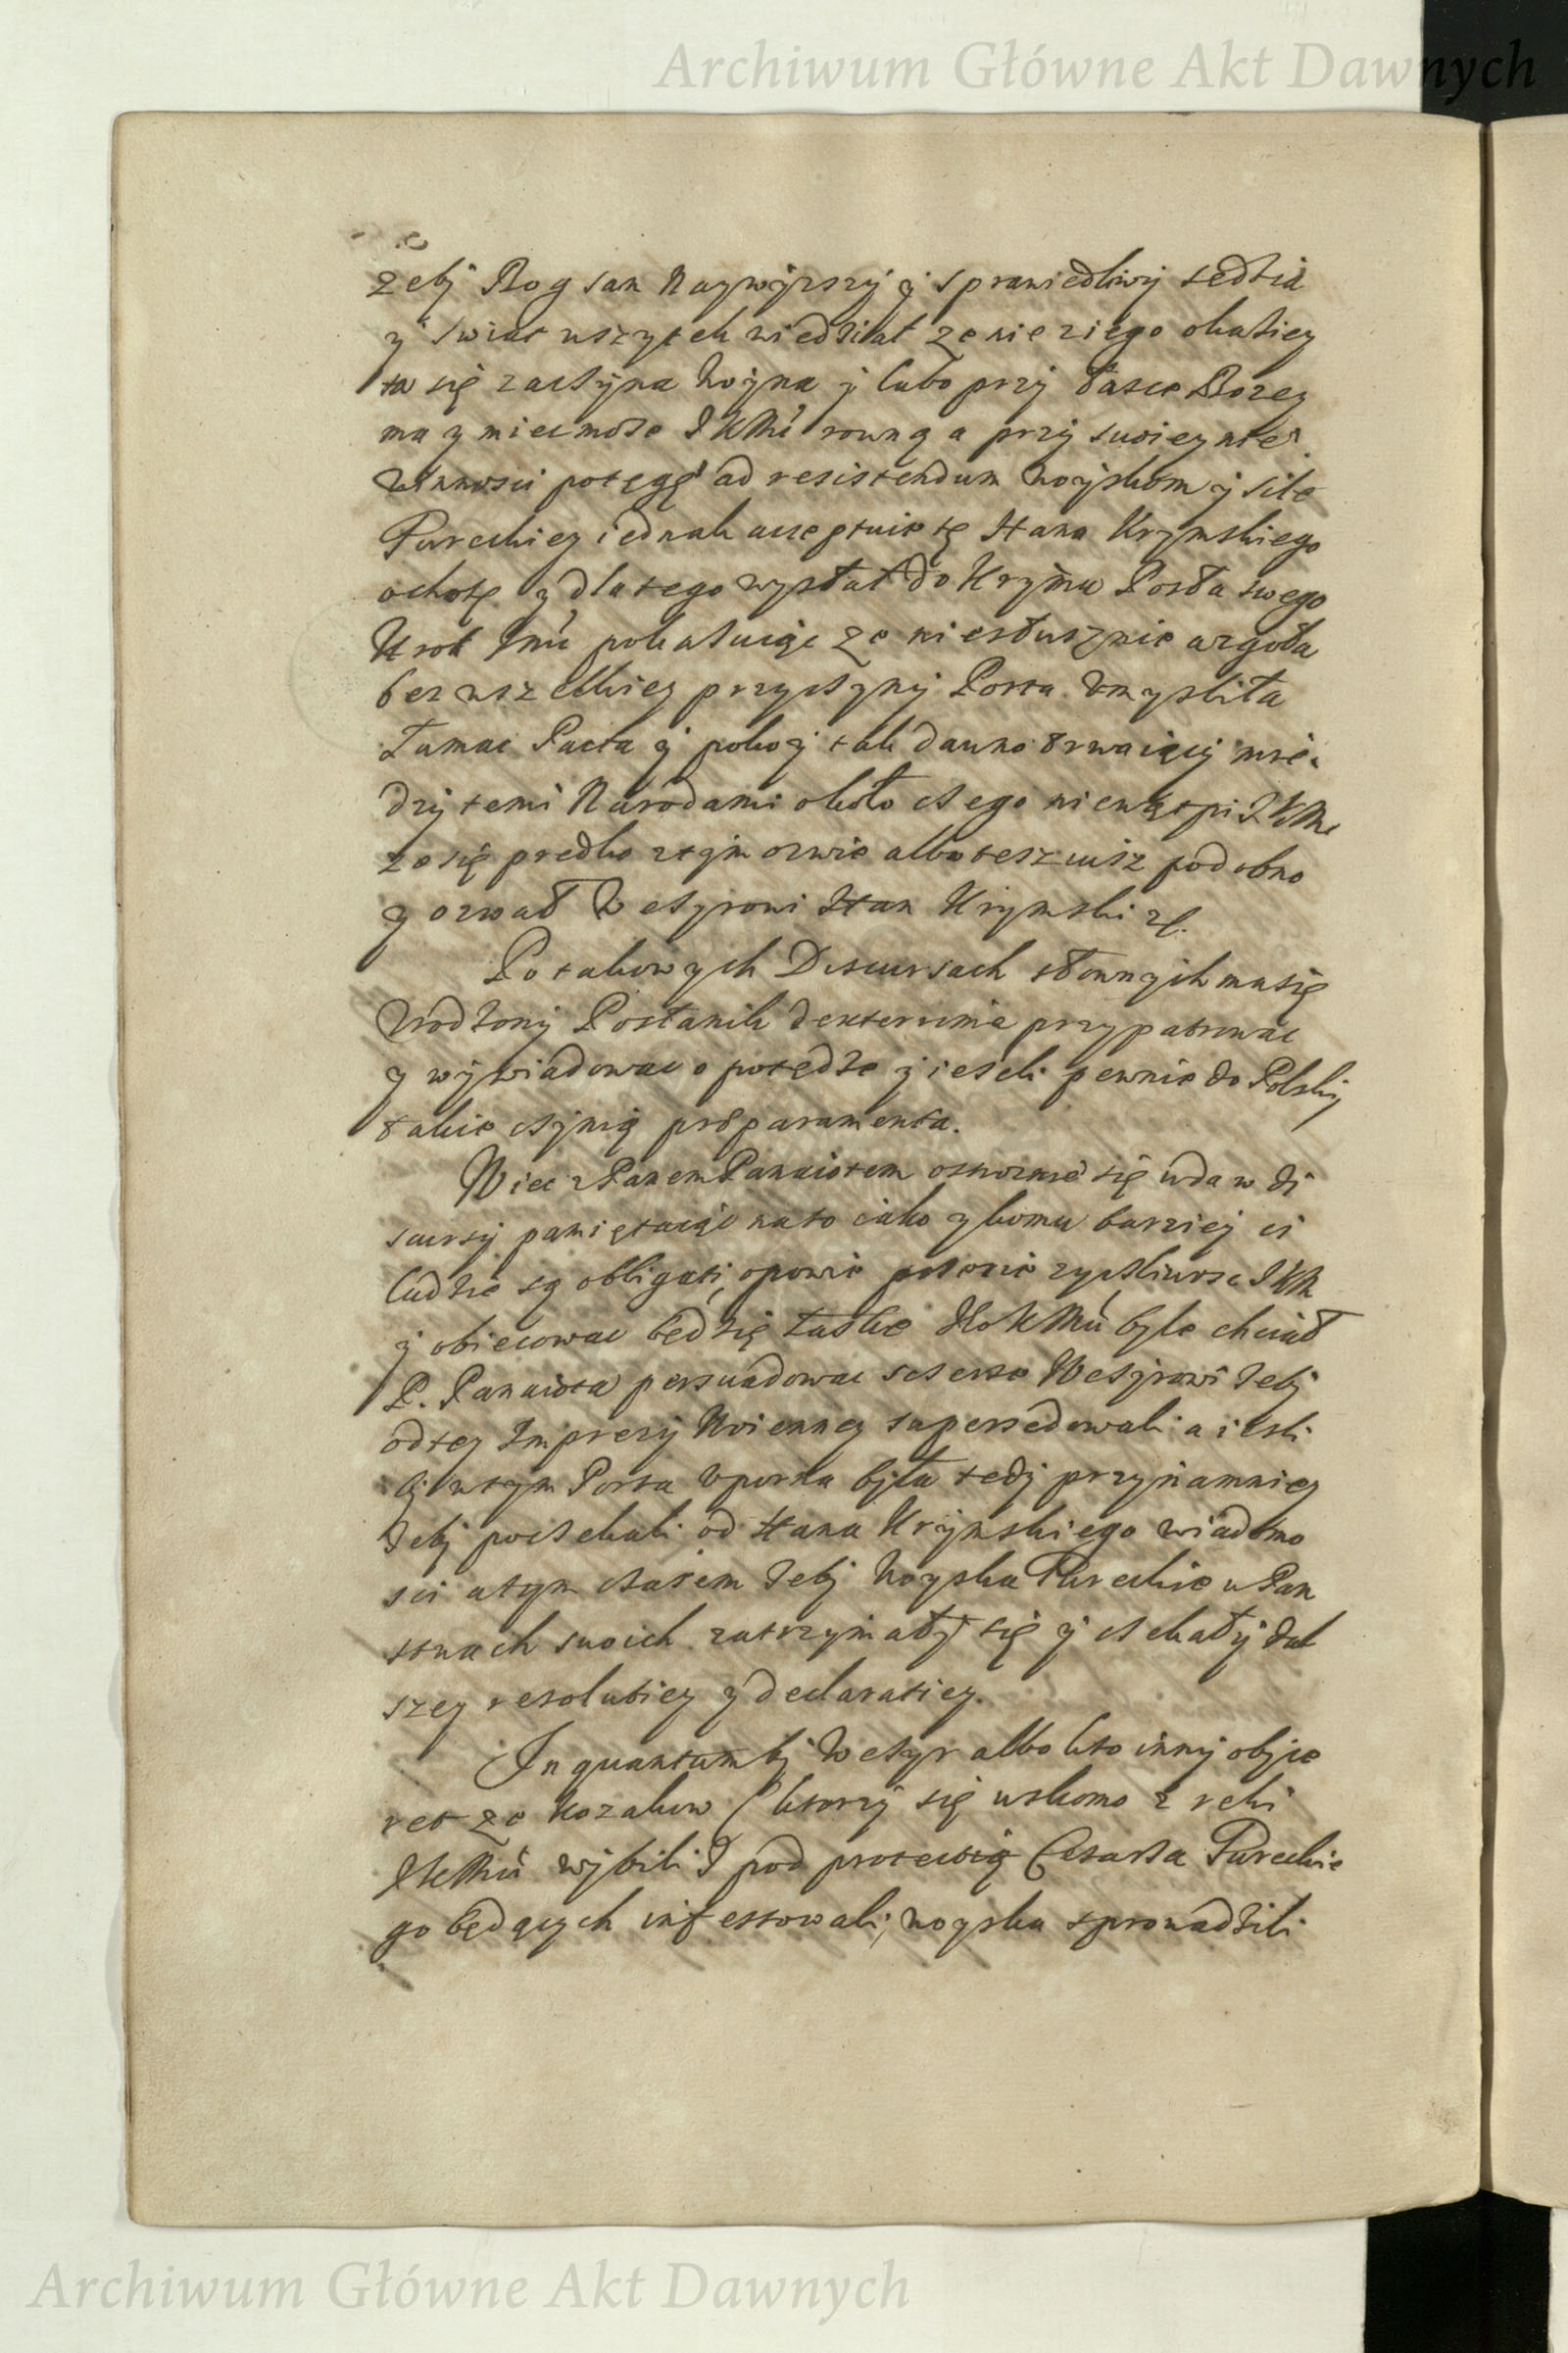 Archiwum Główne Akt Dawnych
żeby Bog sam Naywyższy y sprawiedliwy sędzia
y swiat wszytek wiedział że nie z iego okasiey
ta się zaczyna woyna y lubo przy łasce Bozey
ma y mieć może JKMć rowną a przy swoiey nie
winnosci potęgę ad resistendum woyskom y sile
Tureckiey iednak acceptuie tę Hana Krymskiego
ochotę y dlatego wysłał do Krymu Posła swego
Krol Jmć pokazuiąc że niesłusznie a zgoła
bez wszelkiey przyczyny Porta Vmysliła
łamac Pacta y pokoy tak dawno trwaiący mie
dzy temi Narodami około czego niewątpi JKMć
że się prędko z tym ozwie albo tesz iusz podobno
y ozwał Wezyrowi Han Krymski
Po takowych Discursach słownych ma się
Vrodzony Posłanik dexterrime przypatrowac
y wywiadowac o potędze y ieżeli pewnie do Polsky
takie czynią prӕparamenta.
Wiec z Panem Panaiotem ostroznie się uda w di
scursy pamiętaiąc na to iako y komu barziey ci
ludzie są obligati, opowie
y obiecowac będzię łaskę JKMci byle chciał
P. Panaiota persuadowac szczerze Wezyrowi żeby
od tey Imprezy Woienney supersedowali a iesli
by w tym Porta Vporna była tedy przynamniey
żeby poczekali od Hana Krymskiego wiadomo
sci a tym czasem żeby woyska Tureckie w Pan
stwach swoich zatrzymały się y czekały dal
szey resolutiey y declaratiey.
In quantum by Wezyr albo kto inny obiic
ret że kozakow (ktorzy się wskomo z ręki
JKMci wybili y pod protectią Cesarza Tureckie
go będących infestowali, woyska sprowadzili
Archiwum Główne Akt Dawnych